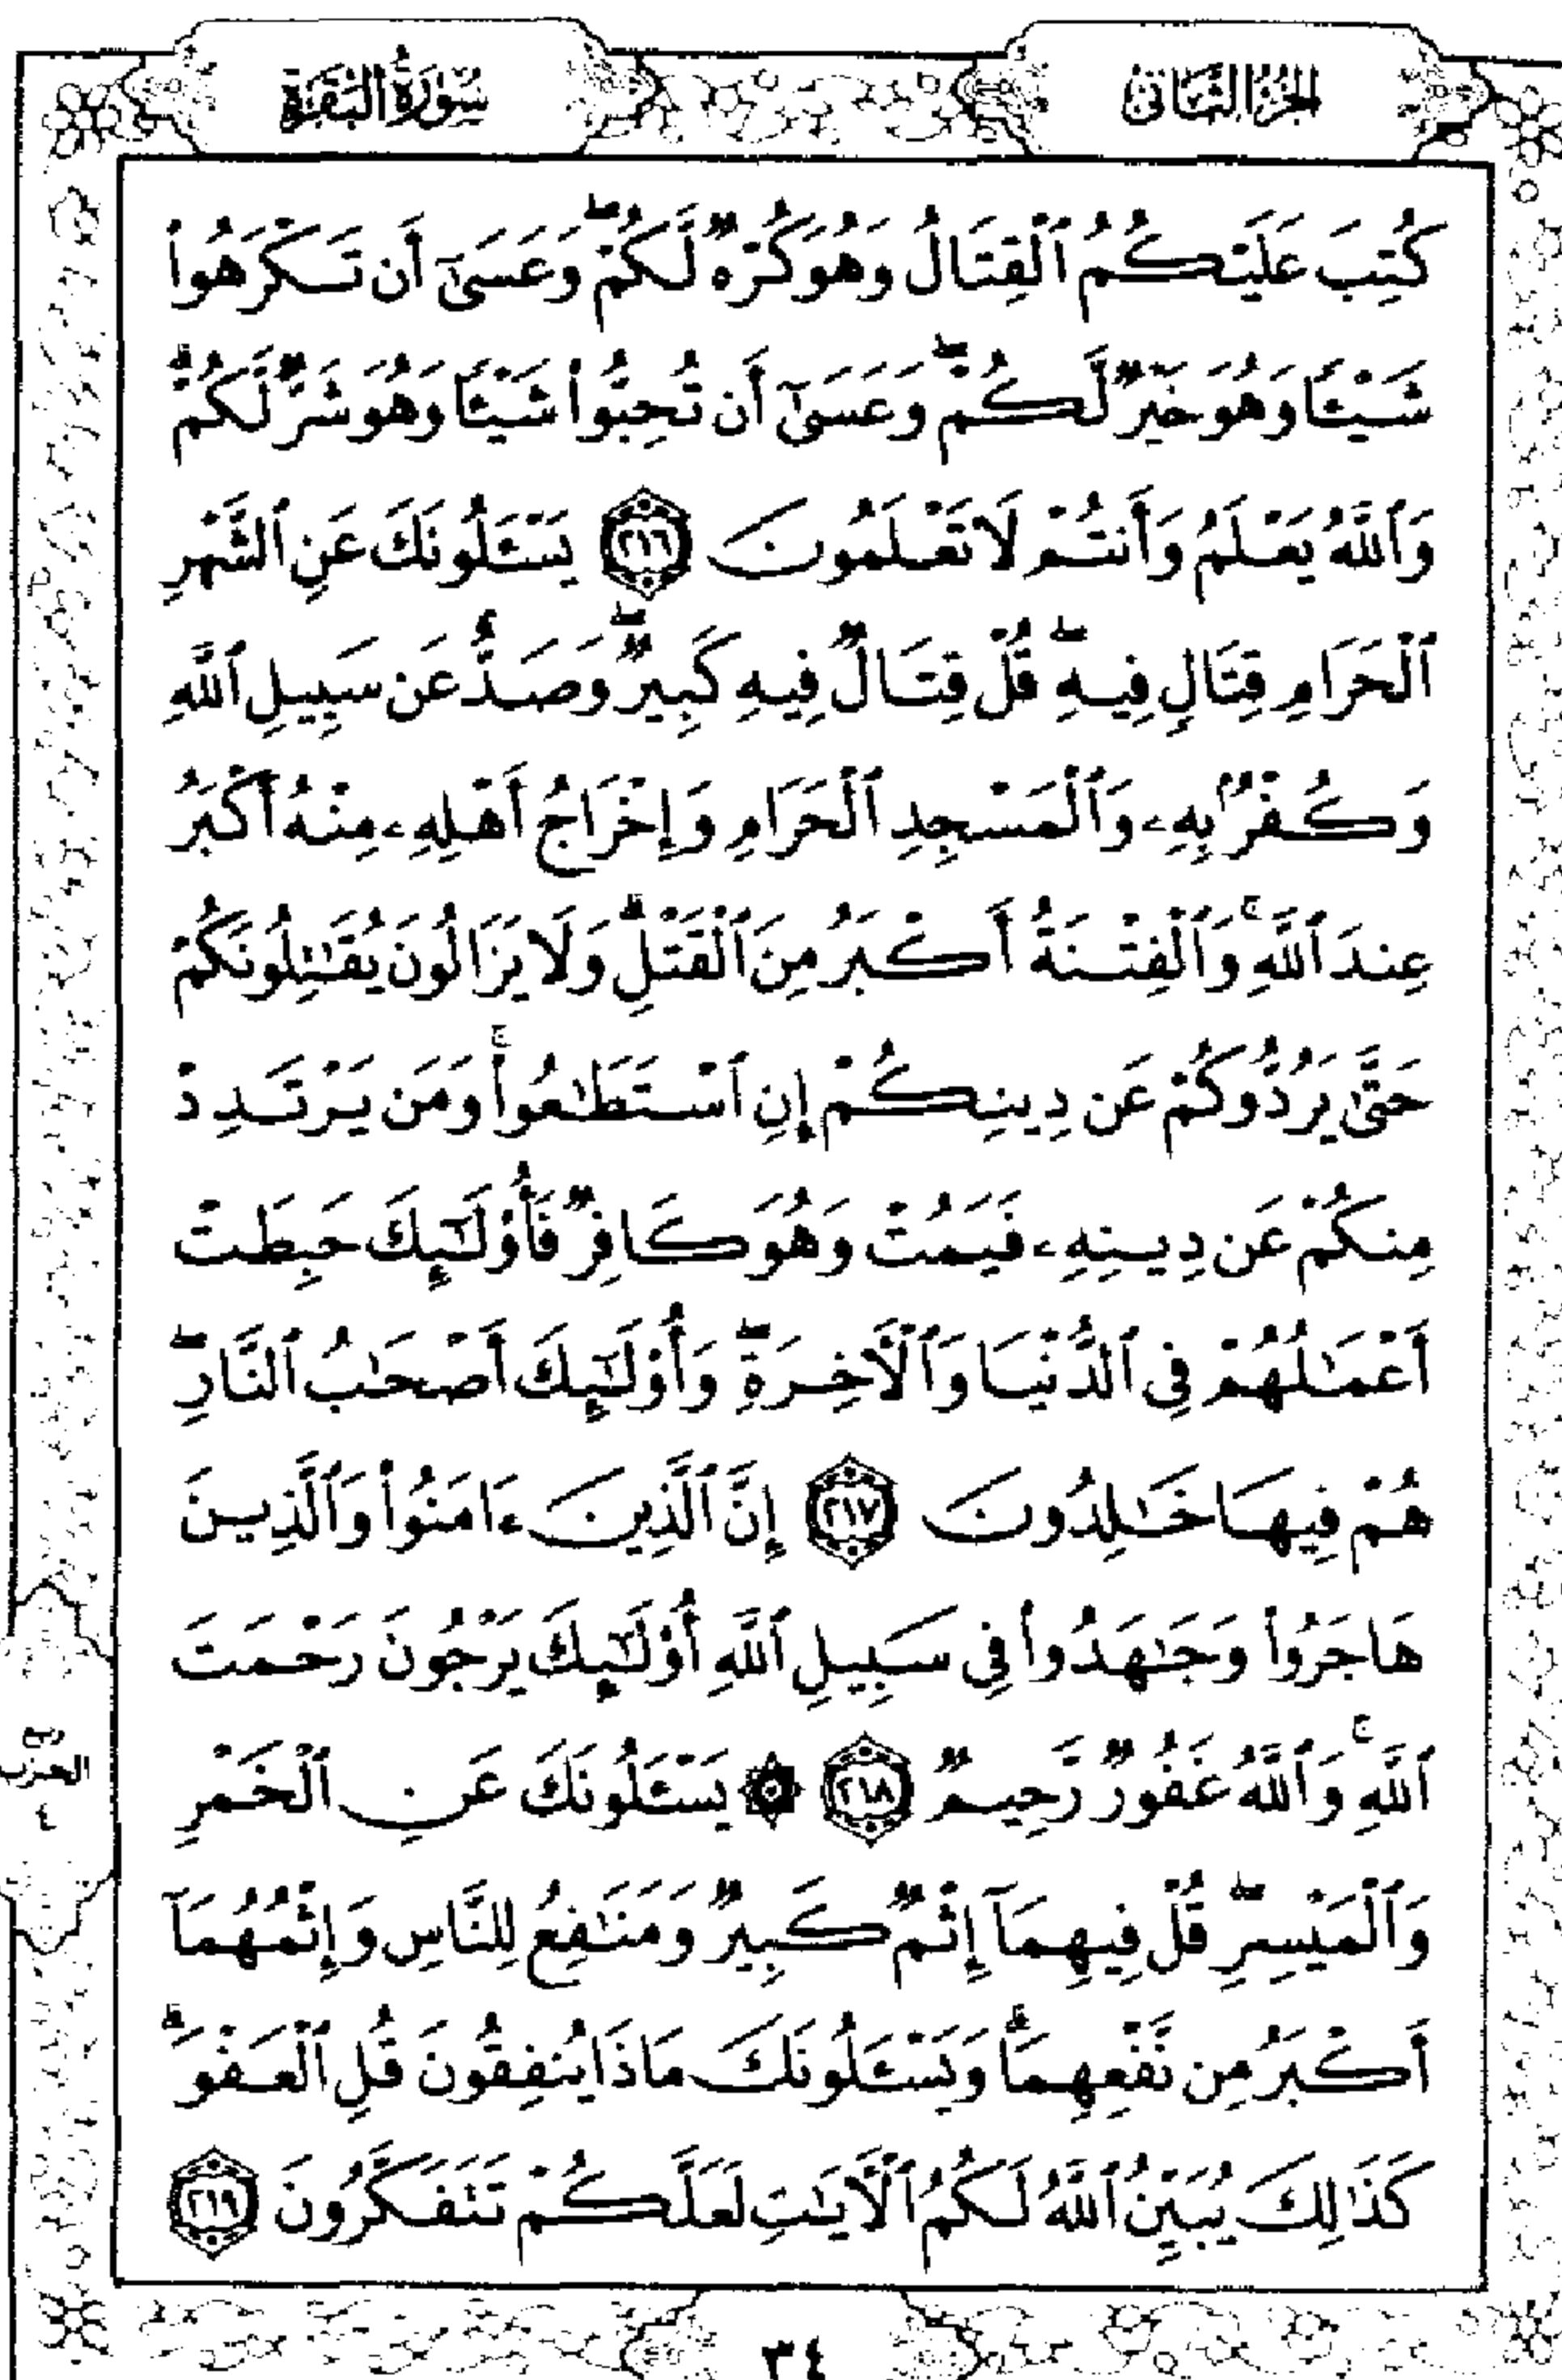 الجزء الثاني
سورة البقرة
كُتِبَ عَلَيْكُمُ ٱلْقِتَالُ وَهُوَ كُرْهٌ لَّكُمْ ۖ وَعَسَىٰٓ أَن تَكْرَهُوا۟
شَيْـًٔا وَهُوَ خَيْرٌ لَّكُمْ ۖ وَعَسَىٰٓ أَن تُحِبُّوا۟ شَيْـًٔا وَهُوَ شَرٌّ لَّكُمْ ۗ
وَٱللَّهُ يَعْلَمُ وَأَنتُمْ لَا تَعْلَمُونَ ٢١٦ يَسْـَٔلُونَكَ عَنِ ٱلشَّهْرِ
ٱلْحَرَامِ قِتَالٍ فِيهِ ۖ قُلْ قِتَالٌ فِيهِ كَبِيرٌ ۖ وَصَدٌّ عَن سَبِيلِ ٱللَّهِ
وَكُفْرٌۢ بِهِۦ وَٱلْمَسْجِدِ ٱلْحَرَامِ وَإِخْرَاجُ أَهْلِهِۦ مِنْهُ أَكْبَرُ
عِندَ ٱللَّهِ ۚ وَٱلْفِتْنَةُ أَكْبَرُ مِنَ ٱلْقَتْلِ ۗ وَلَا يَزَالُونَ يُقَـٰتِلُونَكُمْ
حَتَّىٰ يَرُدُّوكُمْ عَن دِينِكُمْ إِنِ ٱسْتَطَـٰعُوا۟ ۚ وَمَن يَرْتَدِدْ
مِنكُمْ عَن دِينِهِۦ فَيَمُتْ وَهُوَ كَافِرٌ فَأُو۟لَـٰٓئِكَ حَبِطَتْ
أَعْمَـٰلُهُمْ فِى ٱلدُّنْيَا وَٱلْـَٔاخِرَةِ ۖ وَأُو۟لَـٰٓئِكَ أَصْحَـٰبُ ٱلنَّارِ ۖ
هُمْ فِيهَا خَـٰلِدُونَ ٢١٧ إِنَّ ٱلَّذِينَ ءَامَنُوا۟ وَٱلَّذِينَ
هَاجَرُوا۟ وَجَـٰهَدُوا۟ فِى سَبِيلِ ٱللَّهِ أُو۟لَـٰٓئِكَ يَرْجُونَ رَحْمَتَ
ٱللَّهِ ۚ وَٱللَّهُ غَفُورٌ رَّحِيمٌ ٢١٨ ۞ يَسْـَٔلُونَكَ عَنِ ٱلْخَمْرِ
وَٱلْمَيْسِرِ ۖ قُلْ فِيهِمَآ إِثْمٌ كَبِيرٌ وَمَنَـٰفِعُ لِلنَّاسِ وَإِثْمُهُمَآ
أَكْبَرُ مِن نَّفْعِهِمَا ۗ وَيَسْـَٔلُونَكَ مَاذَا يُنفِقُونَ قُلِ ٱلْعَفْوَ ۗ
كَذَٰلِكَ يُبَيِّنُ ٱللَّهُ لَكُمُ ٱلْـَٔايَـٰتِ لَعَلَّكُمْ تَتَفَكَّرُونَ ٢١٩
الحزب
٣٤